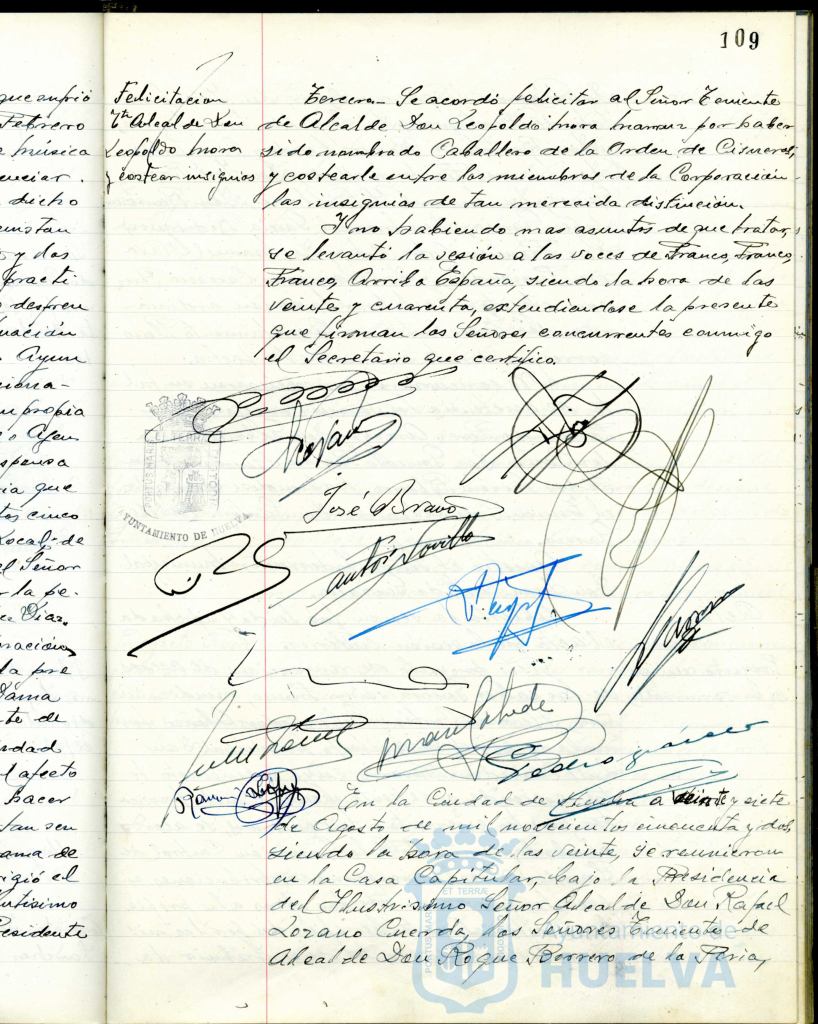 109
que envió
Febrero
música
enciar.
dicho
y dos
practi
despren
uación
Ayun
ciona-
propia
Ayun
spensa
ia que
tos cinco
Local de
el Señor
la pe
Diaz
oración
la pre
Dama
te de
rdad
l afecto
hacer
tan sen
ama de
rigió el
ntísimo
residente
Felicitacion
Tte Alcalde Don
Leopoldo Mora
y costear insignias
Tercera.- Se acordó felicitar al Señor Teniente
de Alcalde Don Leopoldo Mora por haber
sido nombrado Caballero de la Orden de Cisneros,
y costearle entre los miembros de la Corporación
las insignias de tan merecida distinción.
Y no habiendo mas asuntos de que tratar,
se levantó la sesión a las voces de Franco, Franco,
Franco, Arriba España, siendo la hora de las
veinte y cuarenta, extendiendose la presente
que firman los Señores concurrentes conmigo
el Secretario que certifico.
PORTUS MARIS ET TERRAE CUSTODIA
AYUNTAMIENTO DE HUELVA
José Bravo
Pedro
Ramon López
En la Ciudad de Huelva a veinte y siete
de Agosto de mil novecientos cincuenta y dos,
siendo la hora de las veinte, se reunieron
en la Casa Capitular, bajo la Presidencia
del Ilustrisimo Señor Alcalde Don Rafael
Lozano Cuerda, los Señores Teniente de
Alcalde Don Roque Borrero de la Feria,
PORTUS MARIS ET TERRAE CUSTODIA
Ayuntamiento de
HUELVA